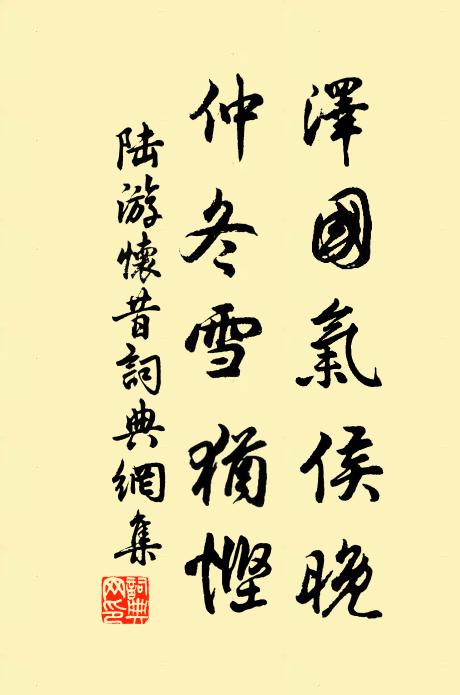 澤國氣侯晚
仲冬雪猶慳
陸游懷昔詞典網集
詞典网印